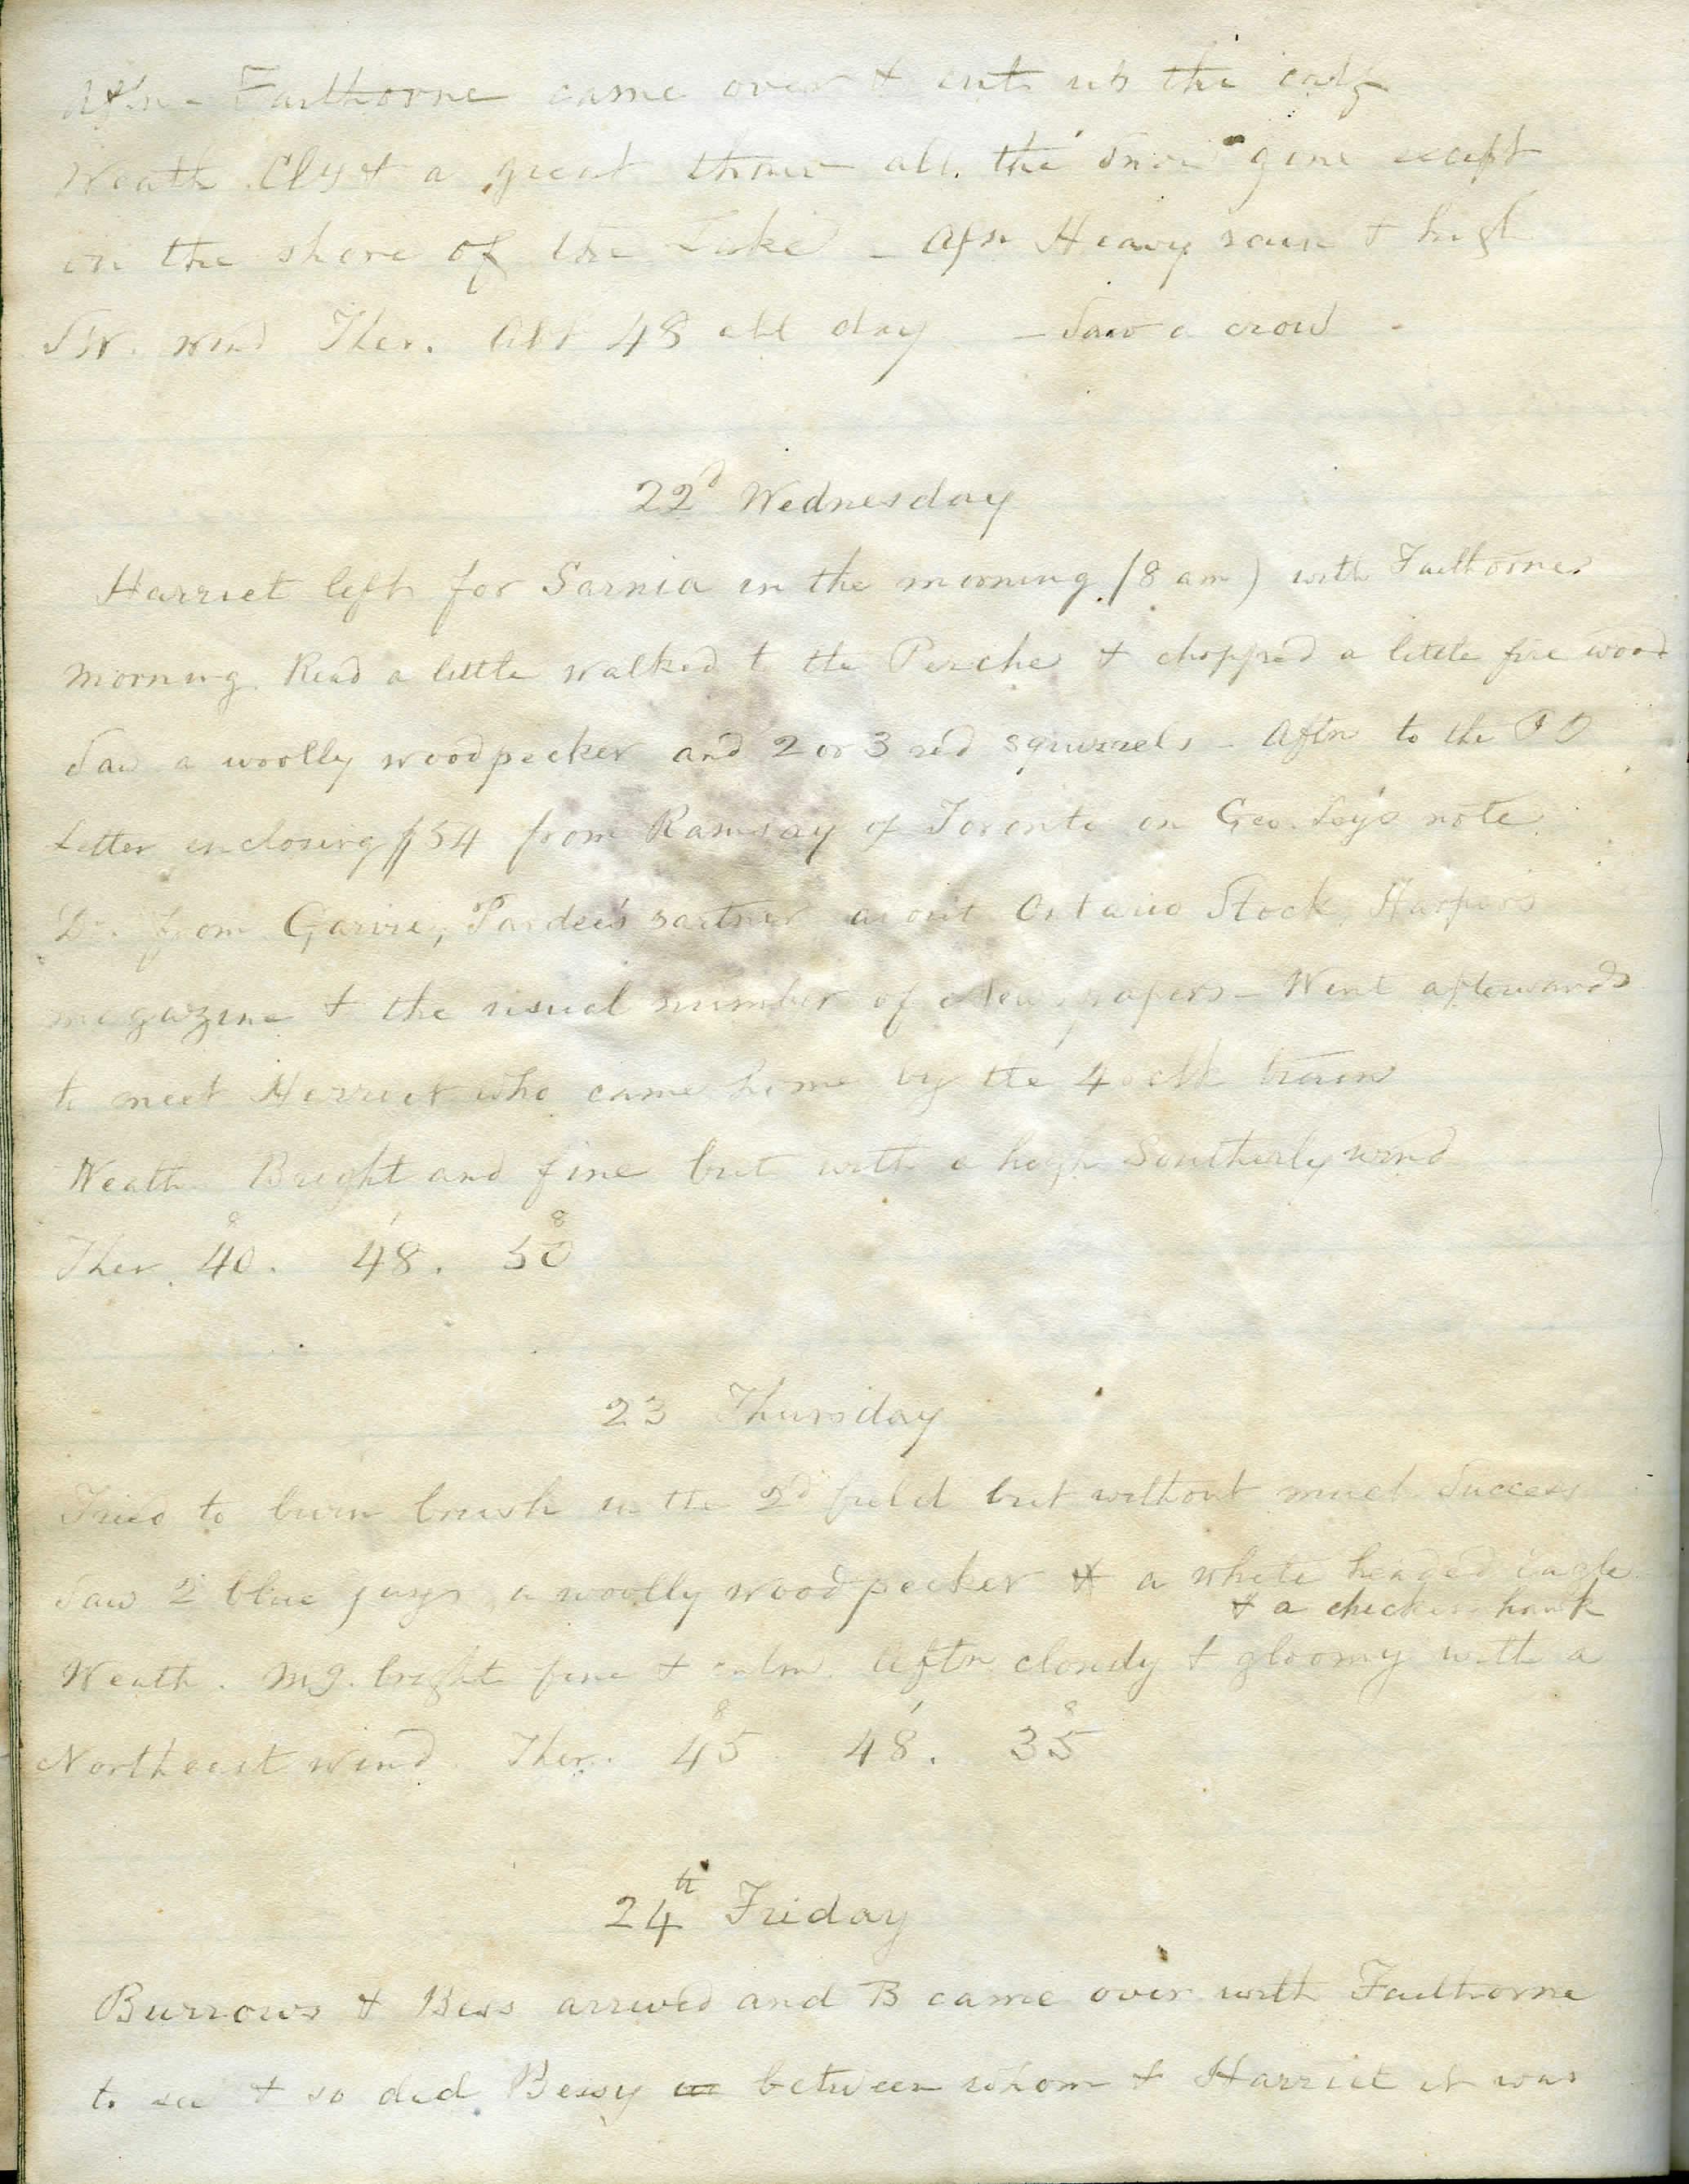 Aftn - Faulthorne came over & cut up the calf
Weath. Cly & a great thaw all the snow gone except
on the shore of the Lake - Afn Heavy rain & high
SW. wind Ther. Abt 48 all day - Saw a crow -
22d Wednesday
Harriet left for Sarnia in the morning (8 am) with Faulthorne.
Morning. Read a little walked t the Perche & chopped a little fire wood
Saw a woolly woodpecker and 2 or 3 red squirrels - Aftn to the P O
Letter enclosing $54 from Ramsay of Toronto on Geo. note.
Do. from Garvie, Pardee's partner about Ontario Stock, Harper's
magazine & the usual number of Newspapers - Went afterwards
to meet Harriet who came home by the 4 oclk train
Weath Bright and fine but with a high Southerly wind
8 1 8
Ther. 40. 48. 50
23 Thursday
Tried to burn brush in the 2d field but without much success
Saw 2 blue jays a woolly woodpecker & a white headed eagle
& a chicken hawk
Weath. Mg. bright fine & calm. Aftn cloudy & gloomy with a
8 1 8
Northeast wind Ther. 45 48. 35
24th Friday
Burrows & Bess arrived and B came over with Faulthorne
to see & so did Bessy between whom & Harriet it was